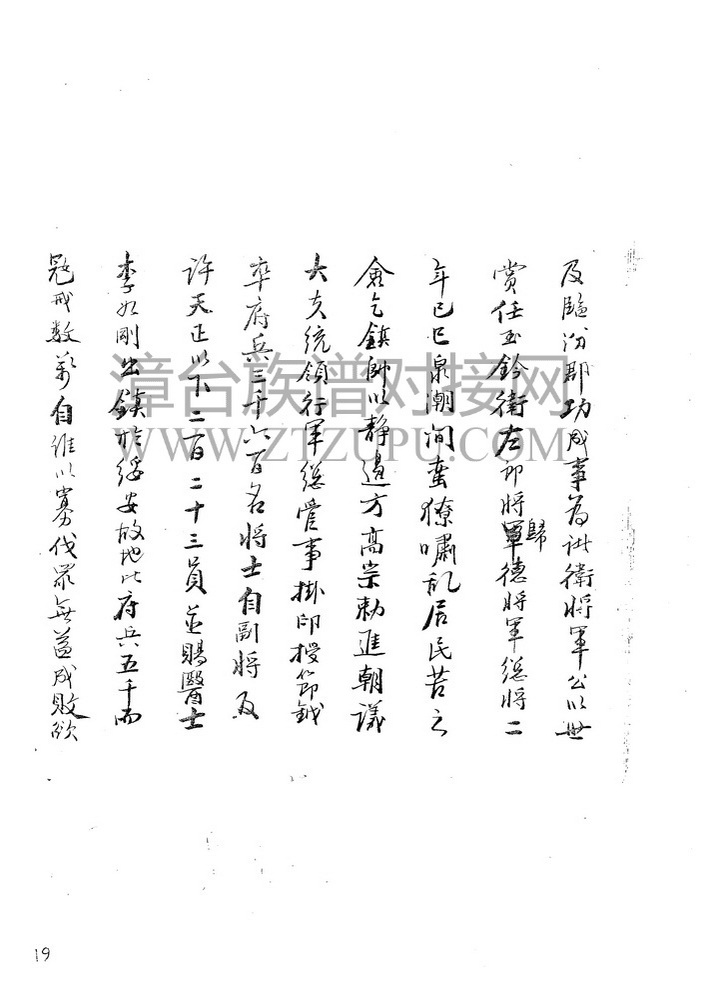 及臨汾郡功成事為訨衛將軍公以世
賞任玉鈐衛左郎將軍歸德將軍總將二
年己巳泉潮間蛮獠嘯乱居民苦之
僉乞鎮帥以靜邉方高宗勅進朝議
大夫統領行軍總管事掛印授節鉞
率府兵三千六百名將士自副將
許天正以下一百二十三員並賜醫士
李如剛出鎮於綏安故地比府兵五千而
冦戒数萬自維以寡伐眾無益成敗欲
漳台族谱对接网
WWW.ZTZUPU.COM
19